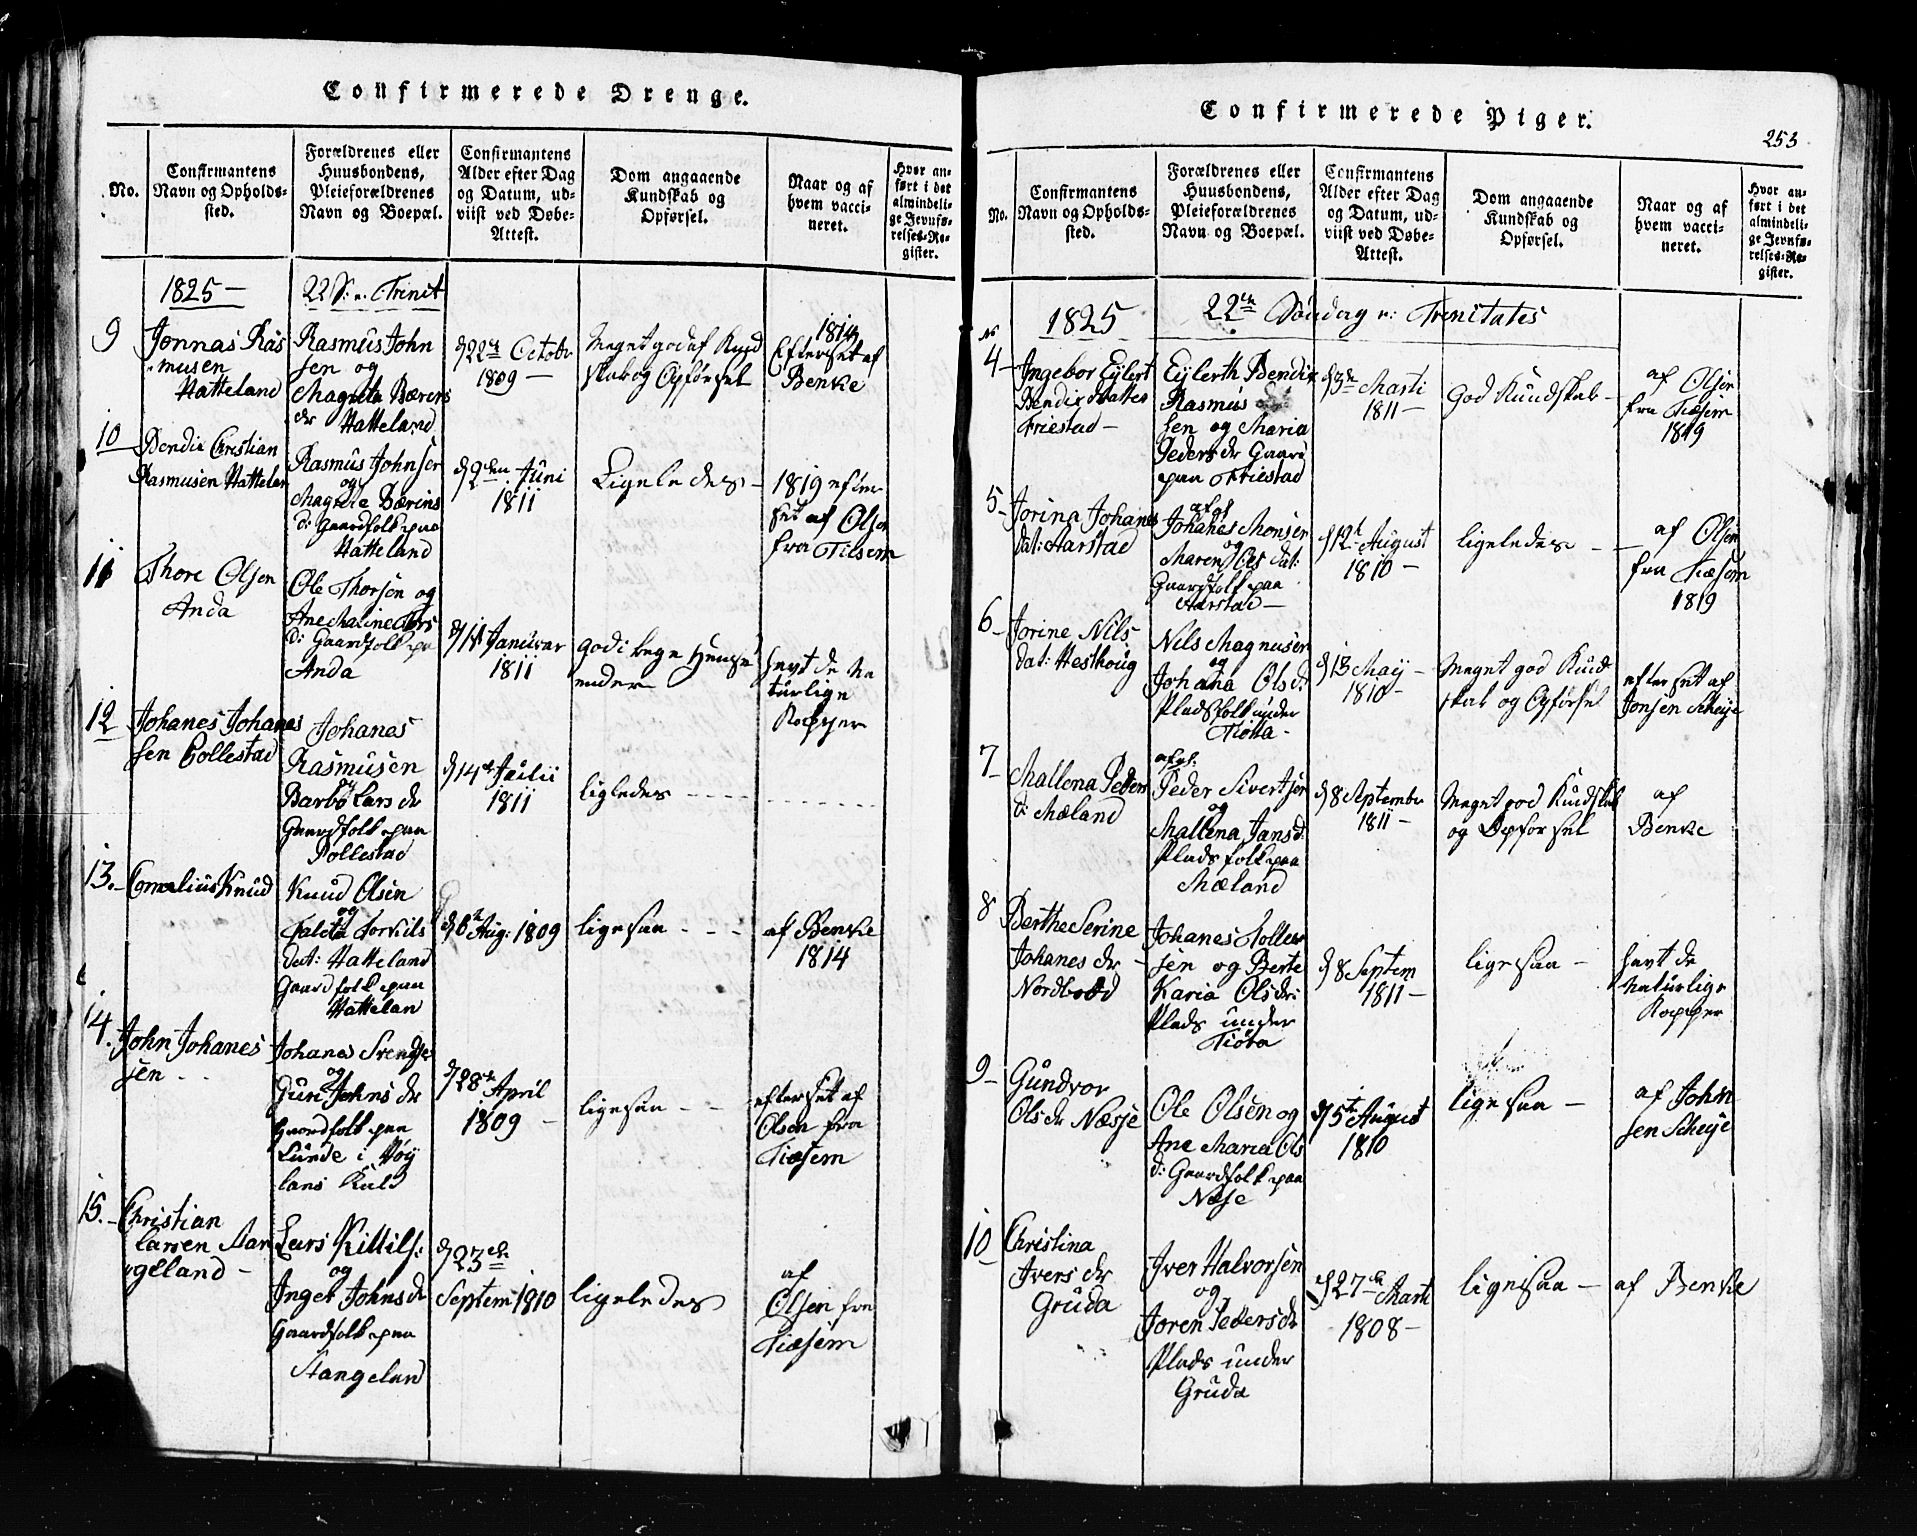 Confirmerede Drenge.
No.
Confirmantens
Navn og Opholds-
sted.
Forældrenes eller
Huusbondens,
Pleieforældrenes
Navn og Boepæl.
Confirmantens
Alder efter Dag
og Datum, ud-
viist ved Døbe-
Attest.
Dom angaaende
Kundskab og
Opførsel.
Naar og af
hvem vacci-
neret.
Hvor an-
ført i det
almindeli-
ge Jevnfø-
relses-Re-
gister.
1825 —
22 S: e: Trinit
9
Jonnas Ras
musen
Hatteland
Rasmus John
sen og
Magreta Bærens
dr Hatteland
d 22 Octobr
1809 —
Meget god af Kund
skab og Opførsel
1814
Efterset af
Benke
10
Bendix Christian
Rasmusen Hattelan
Rasmus Johnsen
og
Magrete Bærins
d: Gaardfolk paa
Hatteland
d 2den Juni
1811
Ligeledes —
1819 efter
set af Olsen
fra
11
Thore Olsen
Anda
Ole Thorsen og
Ane Marine Tors
d: Gaardfolk pa
Anda
d 11 Januar
1811
god i bege Hense
ender
havt de Na
turlige
Kopper
12
Johanes Johanes
sen Pollestad
Johanes
Rasmusen
og
Barbø Lars dr
Gaardfolk paa
Pollestad
d 14 Julii
1811
ligledes - - - -
13. -
Cornelius Knud
Knud Olsen
og
Taleta Torkils
dat: Hatteland
Gaardfolk paa
Hattelan
d 6 Aug: 1809
ligesaa - - -
af Benke
1814
14.
John Johanes
sen - -
Johanes Svendse
og
Guri Johns dr
Gaardfolk paa
Lunde i Høy
lans Kald
d 28 April
1809 —
ligesaa - -
efterset af
Olsen fra
Tiæsem
15. -
Christian
Larsen Aan
geland —
Lars Kittils:
og
Inger Johns dr
Gaardfolk paa
Stangeland
d 23de
Septem 1810
ligeledes
af
Olsen fra
Tiæsem
Confirmerede Piger.
253
No.
Confirmantens
Navn og Opholds-
sted.
Forældrenes eller
Huusbondens,
Pleieforældrenes
Navn og Boepæl.
Confirmantens
Alder efter Dag
og Datum, ud-
viist ved Døbe-
Attest.
Dom angaaende
Kundskab og
Opførsel.
Naar og af
hvem vacci-
neret.
Hvor an-
ført i det
almindeli-
ge Jevnfø-
relses-Re-
gister.
1825
22de Søndag e: Trinitates
No
4 —
Ingebor Eylert
Bendix Dattes
Friestad —
Eylerth Bendix
Rasmus
sen og Maria
Peders dr Gaar
paa Friestad
Marti
1811 —
God Kundskab —
af Olsen
fra Tiæsem
1819
5 -
Jorina Johanes
dat: Aarstad
afgl
Johanes Monsen
og
Maren Ols dat:
Gaardfolk paa
Aarstad —
d 12 August
1810 —
ligeledes - —
af Olsen
fra Tiæsem
1819
6 -
Jorine Nils
dat: Hesthoug
Nils Magnusen
og
Johana Ols d:
Pladsfolk under
Tiøtta -
d 13 May —
1810 -
Meget god Kund
skab og Opførsel
efterset af
Jonsen Scheije
7 -
Mallena Peders
d: Mæland
afgl:
Peder Sivertsen
og
Mallena Jans d:
Plads folk paa
Mæland
d 8 Septembr
1811 —
Meget god Kundskab
og Opførsel
af
Benke
8
Berthe Serine
Johanes dr -
Nordbød
Johanes Toller
sen og Berte
Karia Ols dr:
Plads under
Tiøta
d 8 Septem
1811 —
ligesaa —
havt de
Naturlige
Kopper
9 -
Gundvor
Ols dr Næsje
Ole Olsen og
Ane Maria Ols
d: Gaardfolk paa
Næse
d 5te August
1810
ligesaa —
af John
sen Scheije
10 -
Christina
Ivers dr
Gruda
Iver Halvorsen
og
Joren Peders dr
Plads under
Gruda
d 27de Marti
1808 -
ligesaa —
af Benke